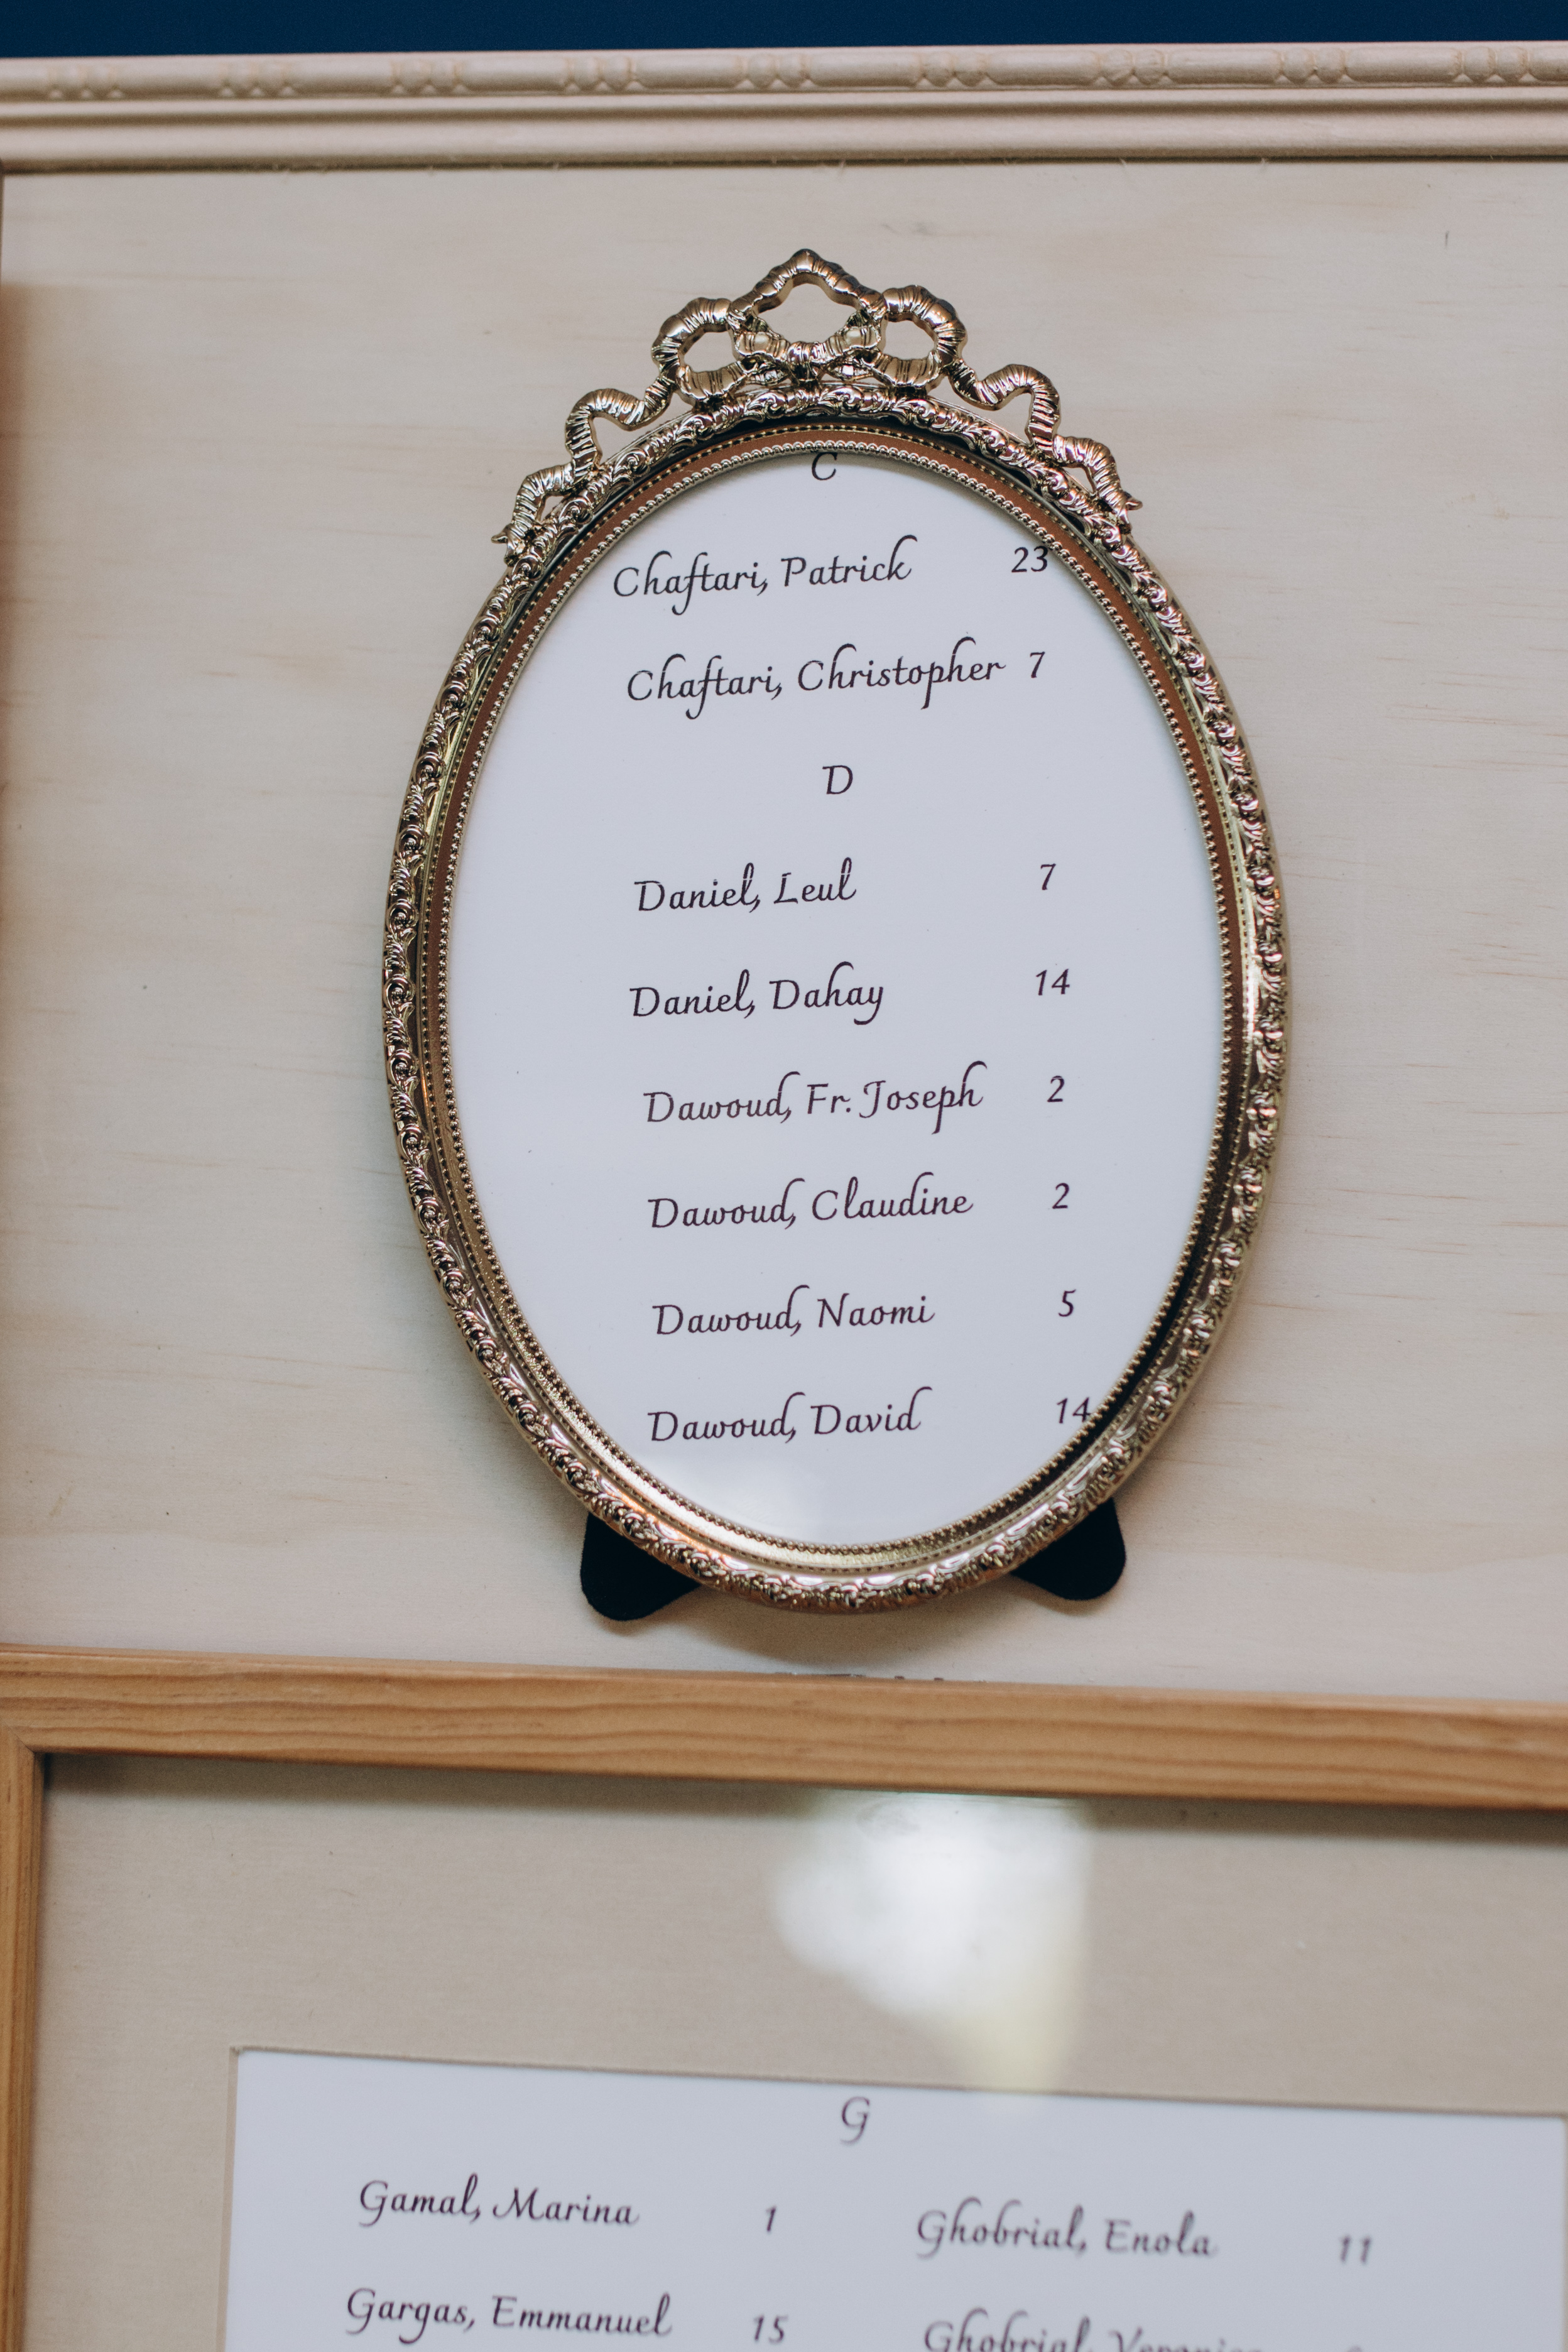 C
Chaftari, Patrick 23
Chaftari, Christopher 7
D
Daniel, Leul 7
Daniel, Dahay 14
Dawoud, Fr. Joseph 2
Dawoud, Claudine 2
Dawoud, Naomi 5
Dawoud, David 14
G
Gamal, Marina 1
Ghobrial, Enola 11
Gargas, Emmanuel 15
Ghobrial,